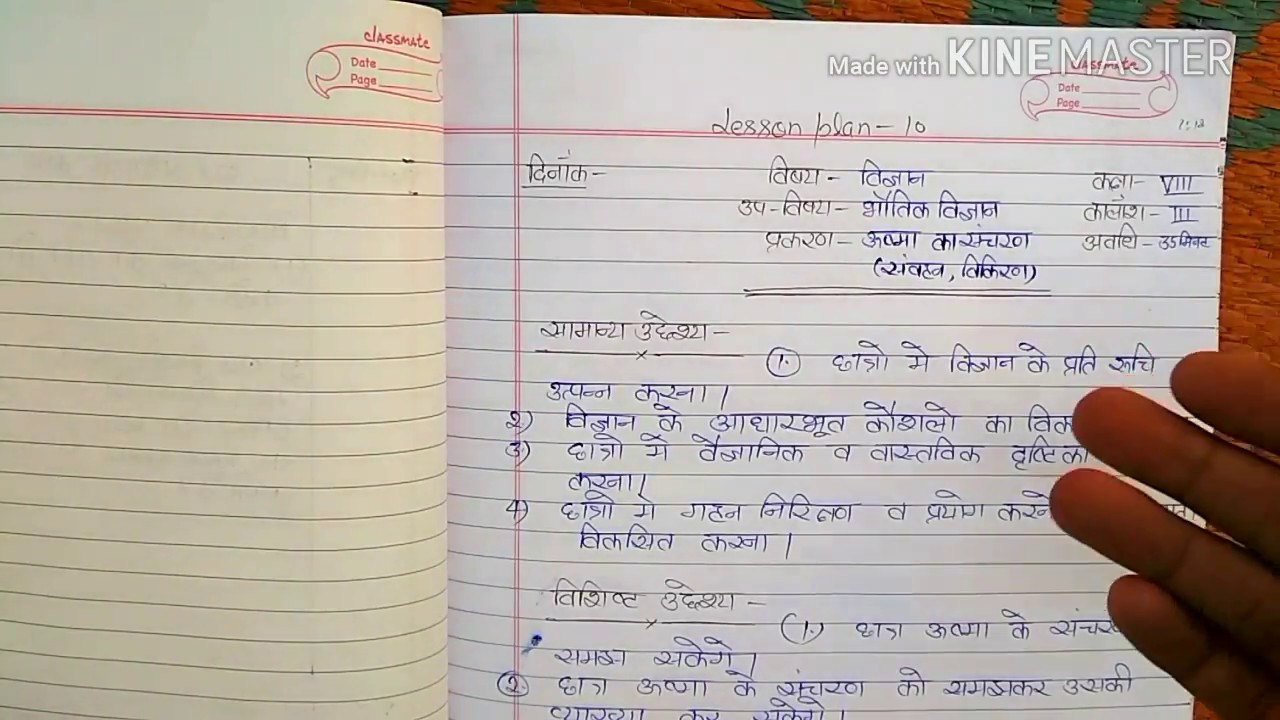 classmate
Date
Page
Made with KINEMASTER
classmate
Date
Page
Lesson plan - 10
दिनाँक-
विषय - विज्ञान
कक्षा- VIII
उप-विषय - भौतिक विज्ञान
कालाँश- III
प्रकरण - ऊष्मा का संचरण
अवधि - 35 मिनट
(संवहन, विकिरण)
सामान्य उद्देश्य -
1. छात्रो मे विज्ञान के प्रति रूचि
उत्पन्न करना।
2) विज्ञान के आधारभूत कौशलो का
3) छात्रो मे वैज्ञानिक व वास्तविक
करना।
4) छात्रो मे गहन निरिक्षण व प्रयोग करने
विकसित करना।
विशिष्ट उद्देश्य -
(1.) छात्र ऊष्मा के
समझ सकेगे।
2. छात्र ऊष्मा के संचरण को समझकर उसकी
व्याख्या कर सकेगे।